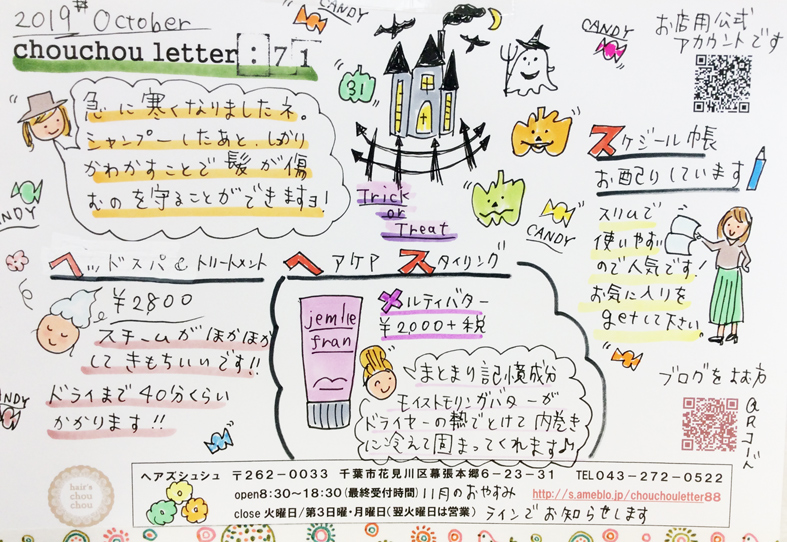 2019年 October
chouchou letter:71
急に寒くなりましたネ。
シャンプーしたあと、しっかり
かわかすことで髪が傷
むのを守ることができますョ!
CANDY
31
CANDY
お店用公式
アカウントです
Trick
or
Treat
CANDY
CANDY
スケジール帳
お配りしています
スリムで
使いやすい
ので人気です!
お気に入りを
getして下さい。
ヘッドスパ&トリートメント
¥2800
スチームがほかほか
してきもちいいです!!
ドライまで40分くらい
かかります!!
CANDY
ヘアケア スタイリング
jemile
fran
メルティバター
¥2000+税
まとまり記憶成分
モイストモリンガバターが
ドライヤーの熱でとけて内巻き
に冷えて固まってくれます♪
ブログをよむ方
QRコード
hair's
chou
chou
ヘアズシュシュ 〒262-0033 千葉市花見川区幕張本郷6-23-31 TEL043-272-0522
open8:30~18:30(最終受付時間) 11月のおやすみ http://s.ameblo.jp/chouchouletter88
close 火曜日/第3日曜・月曜日(翌火曜日は営業) ラインでお知らせします